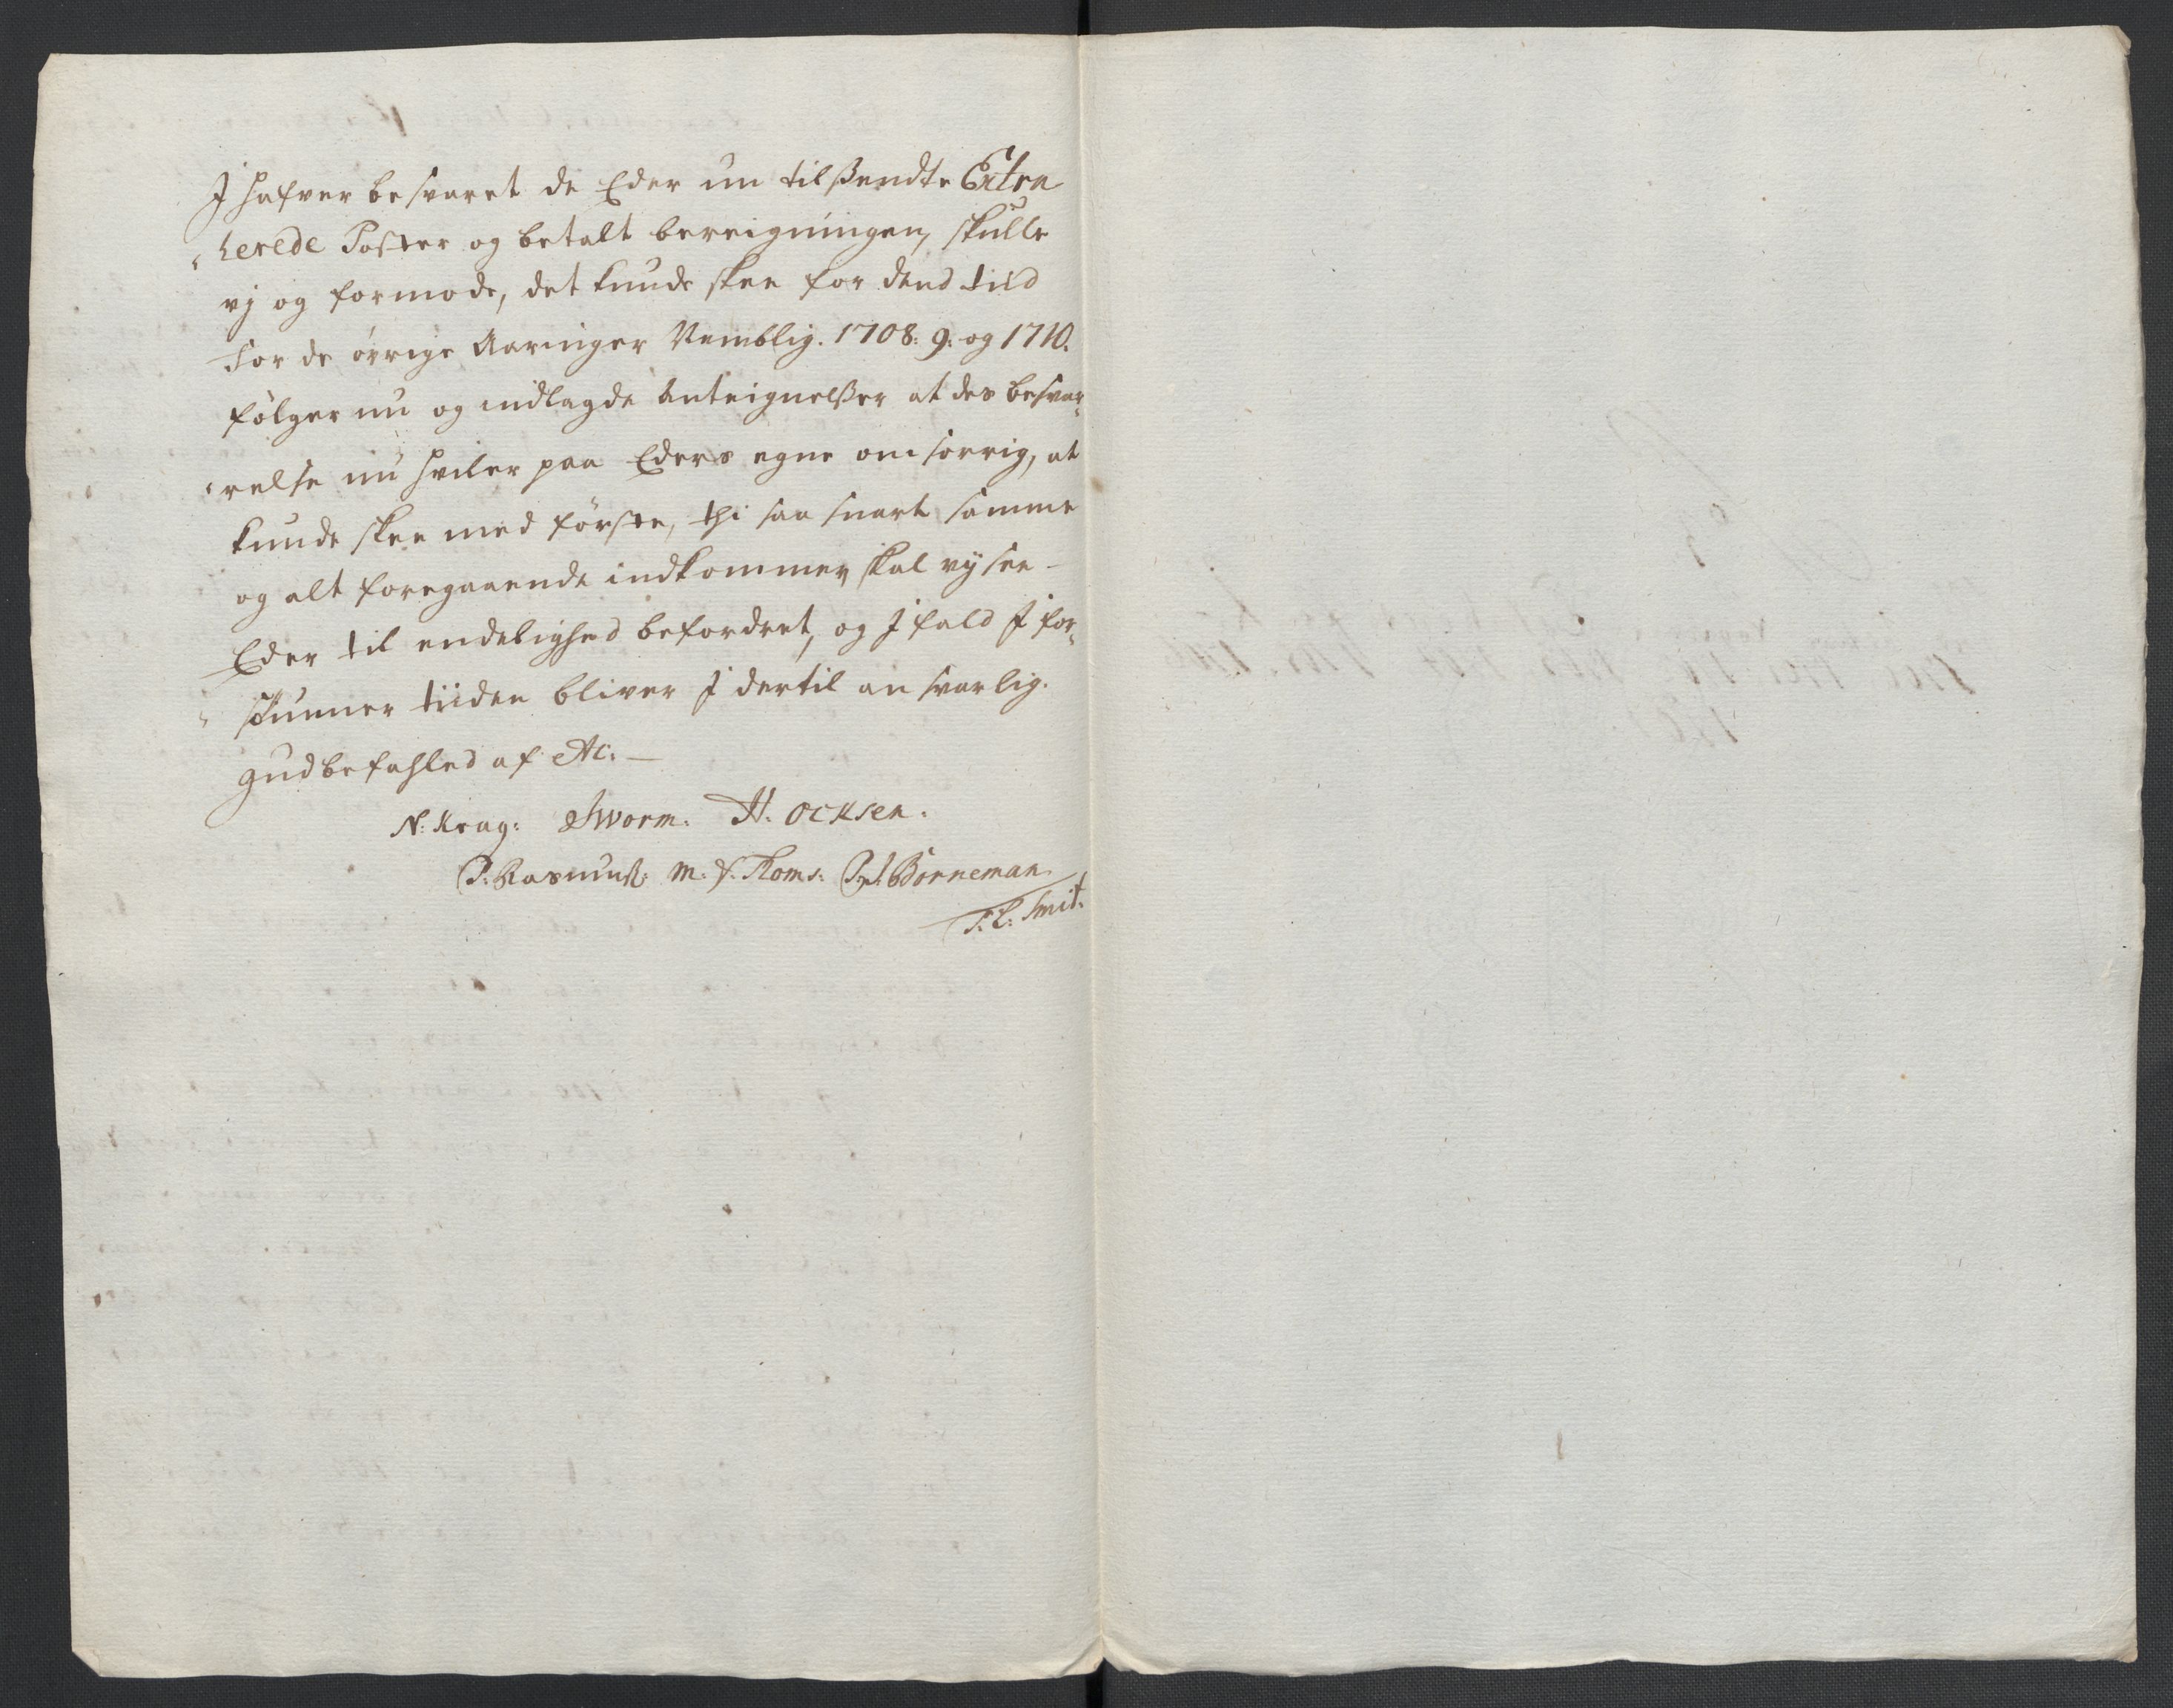 J hafver besvaret de Eder nu tilßendte Extra
"herede Poster og betalt bereigningen, skulle
vj og formode, det kunde skee for dend tid
For de øvrige Aaringer Nemblig. 1708: 9: og 1710.
følger nu og indlagde Anteignelßer at des besvar„
"relse nu hviler paa Eders egne omsorrig, at
kunde skee med første, thi saa snart samme
og alt foregaaende indkommer, skal vij see
Eder til endelighed befordret, og J fald J for„
"sømmer tiiden bliver J dertil ansvarlig.
Gud befahled af etc: —
N: Krag: Worm: H. Ocksen.
P: Rasmuss: M: Thoms: Borneman
T: C: Smit: